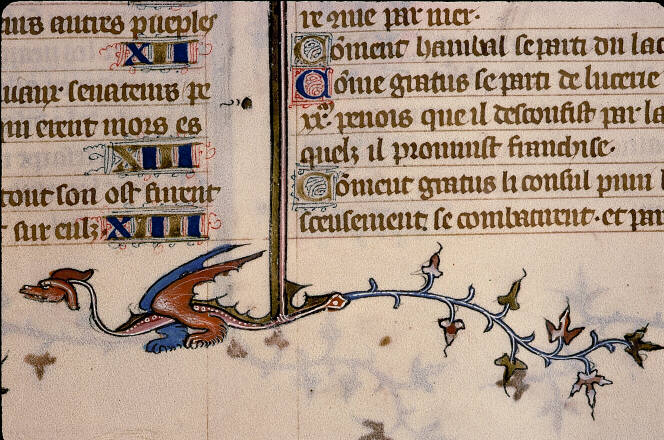 autres pueples
XII
senateurs pe
eient mors es
XIII
tout son ost furent
sur eulz XIIII
re nue par mer.
Cōment hanibal se parti du lac
Cōme gratus se parti de lucerie
penois que il desconfist par la
quelz il promist franchise.
Cōment gratus li consul
se combatirent. et par